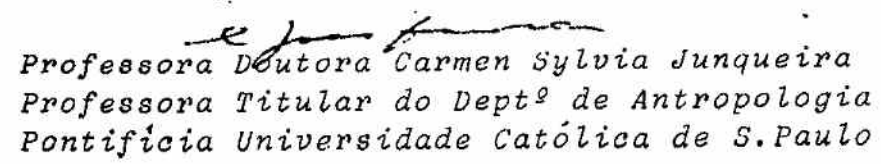 Professora Doutora Carmen Sylvia Junqueira
Professora Titular do Deptº de Antropologia
Pontifícia Universidade Católica de S.Paulo